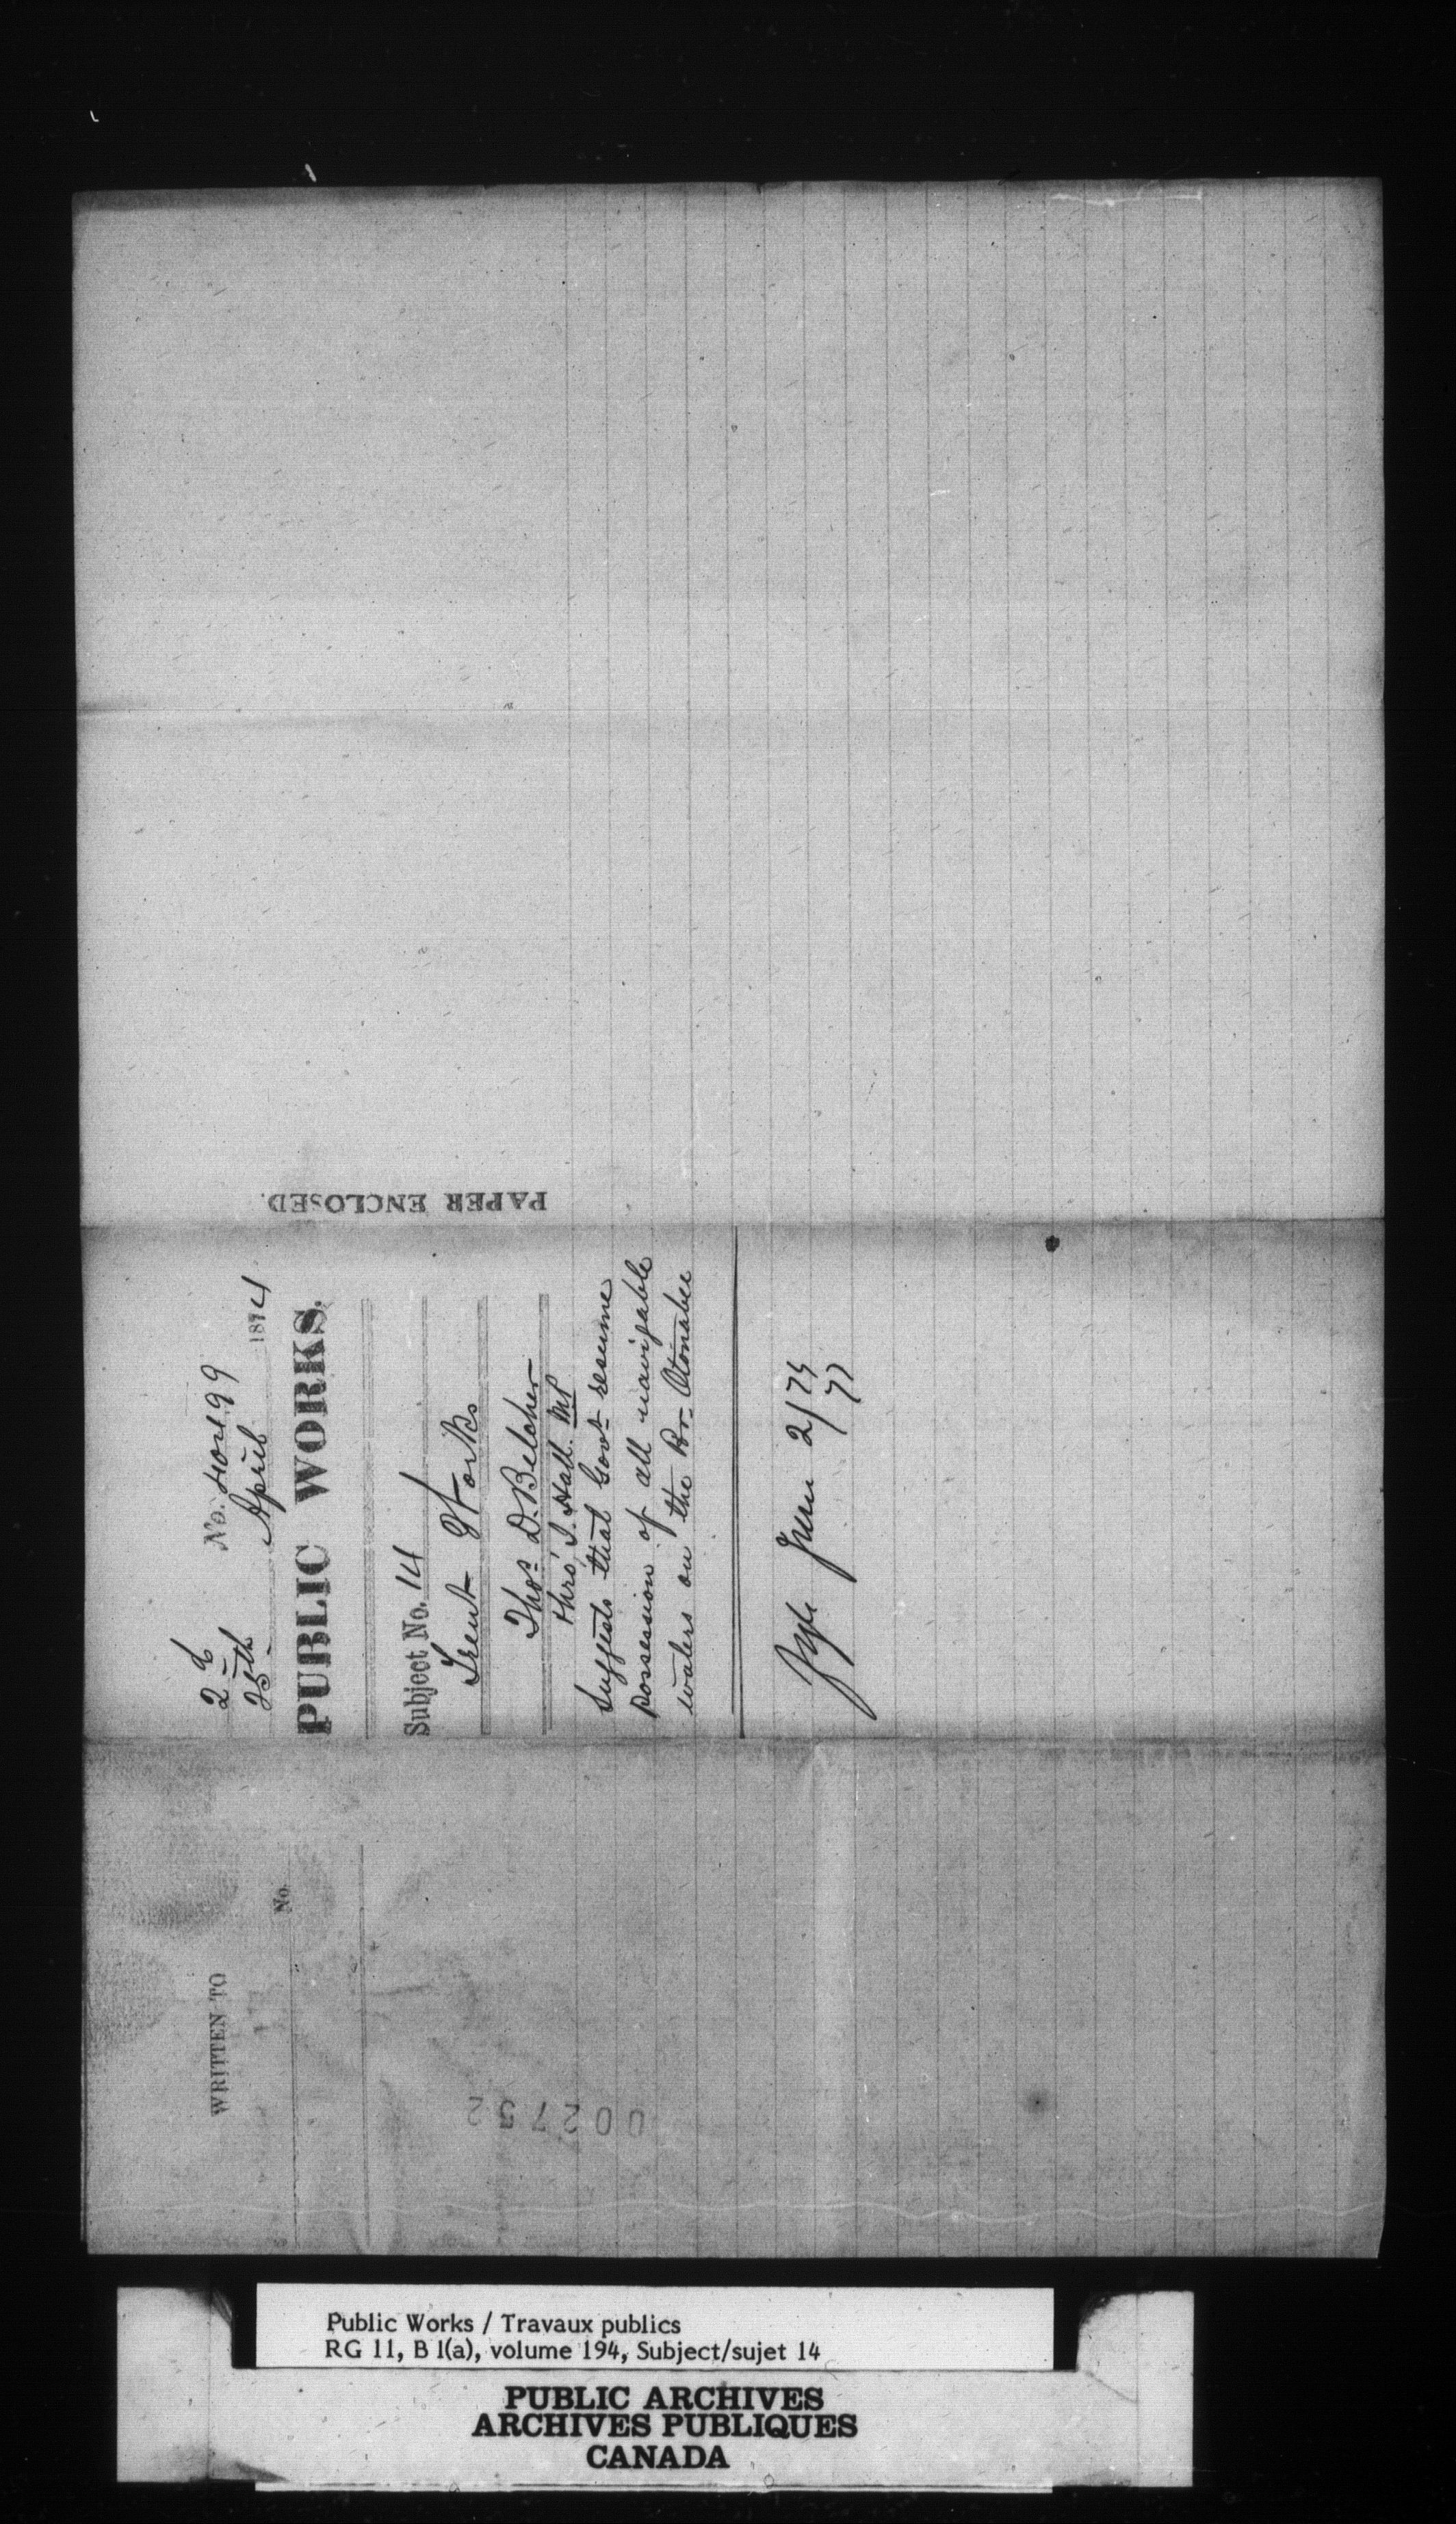 2-6 No. 40499
25th April 1874
PUBLIC WORKS.
Subject No. 14
Trent Works
Thos. D. Belcher
thro' J. Hall. MP
Suggests that Govt. resume
possession of all navigable
waters on the Rr. Otonabee
2/75
77
PAPER ENCLOSED.
WRITTEN TO
No.
002752
Public Works / Travaux publics
RG 11, B 1(a), volume 194, Subject/sujet 14
PUBLIC ARCHIVES
ARCHIVES PUBLIQUES
CANADA